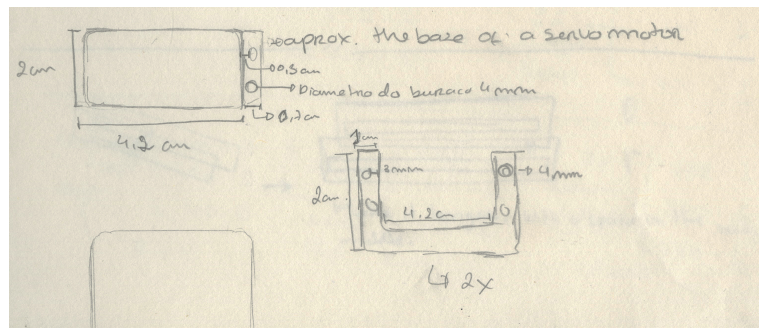 aprox. the base of a servo motor
2cm
0,3cm
Diametro do buraco 4mm
0,7cm
4,2 cm
1cm
3mm
4mm
2cm
4.2cm
2x